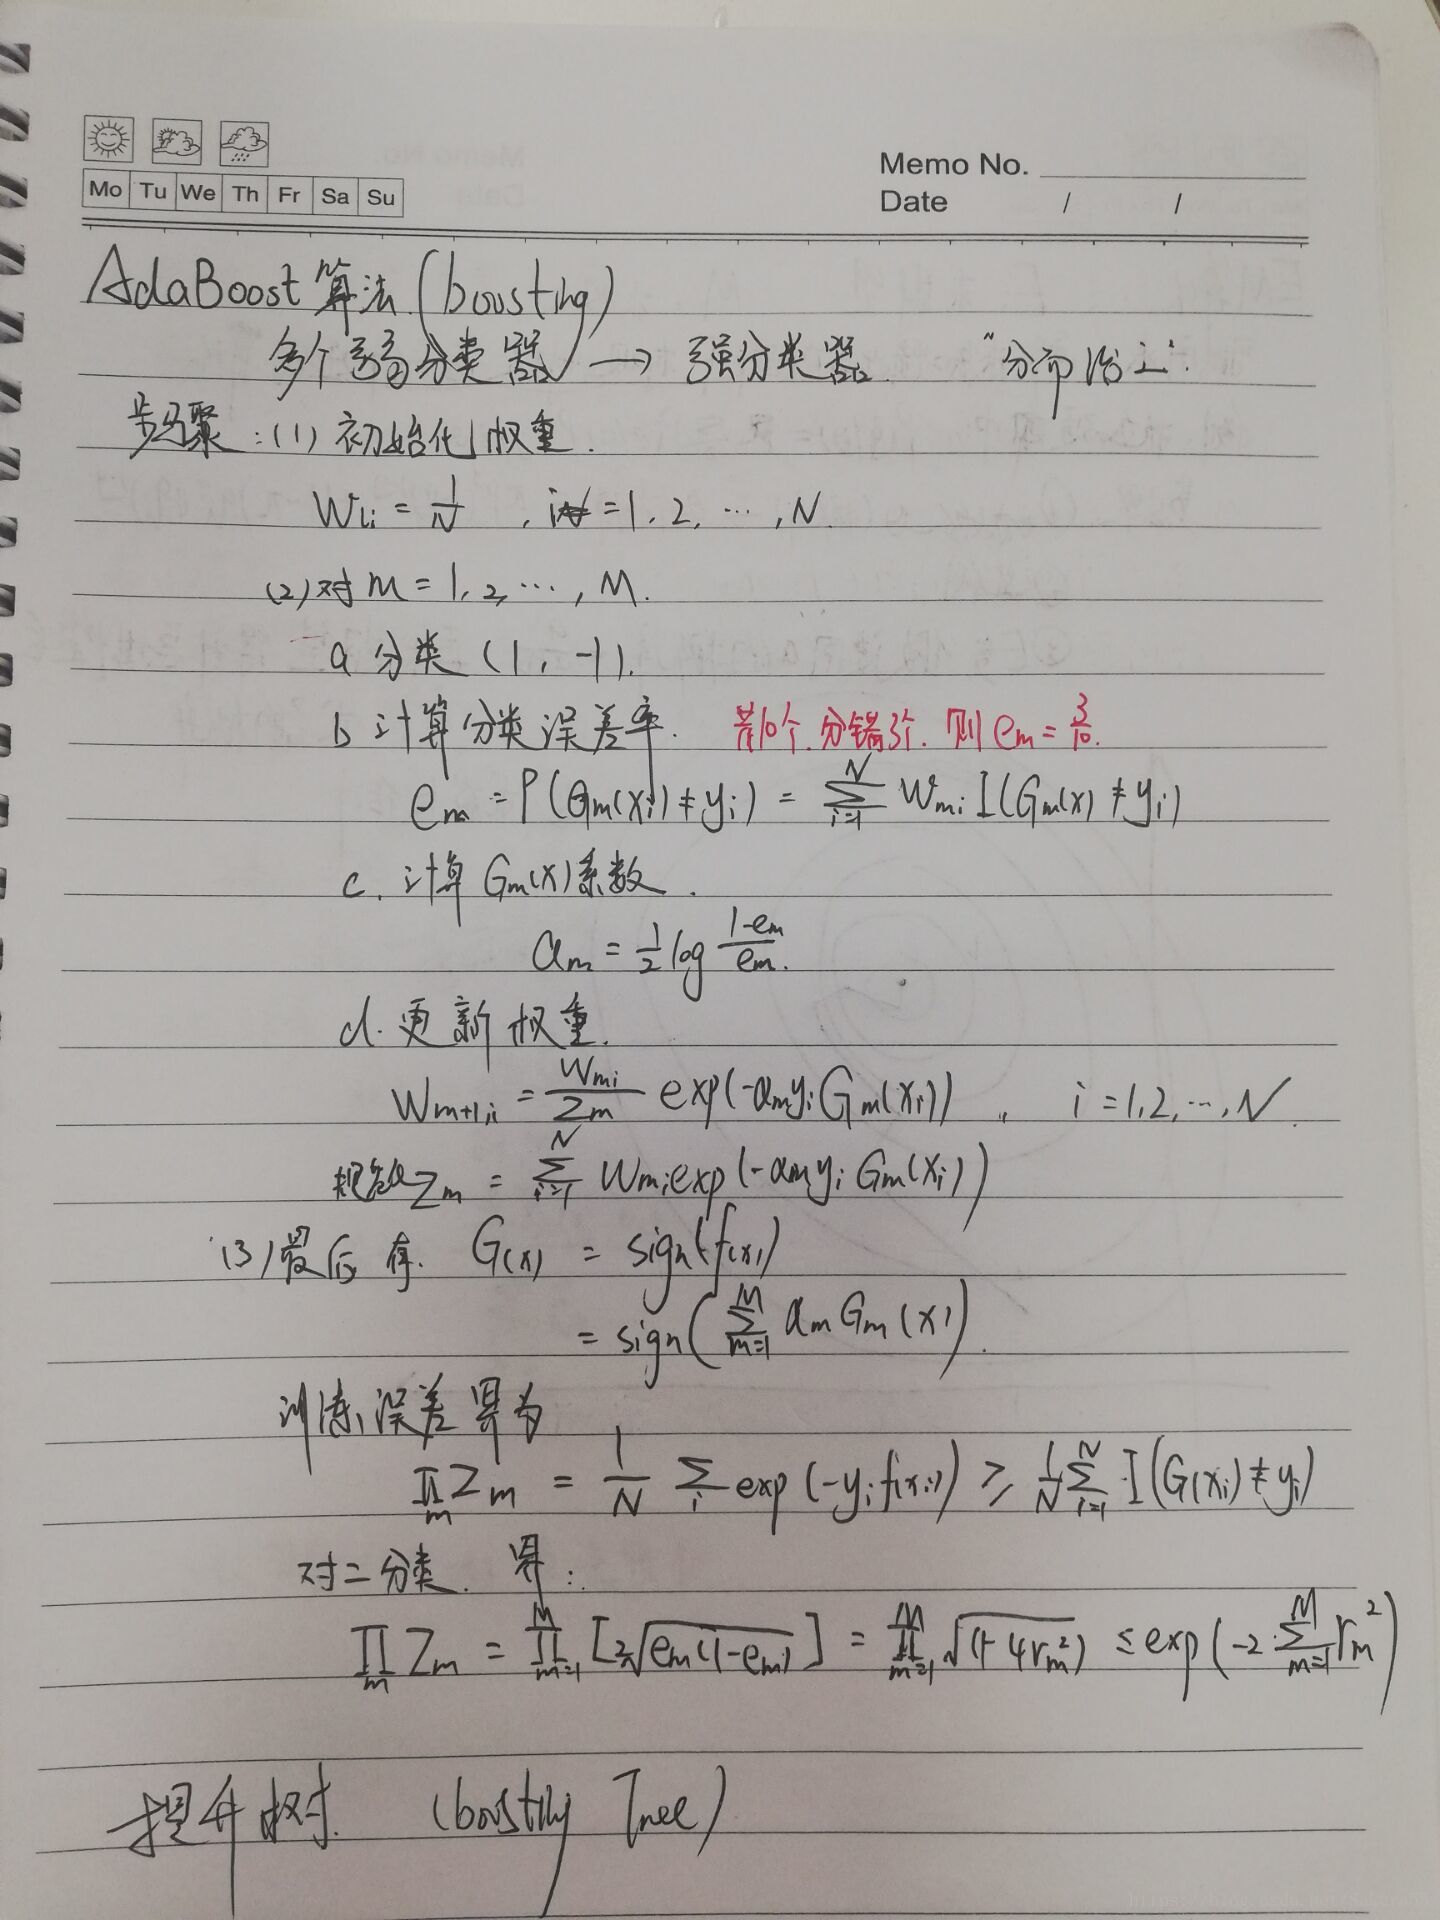 Mo Tu We Th Fr Sa Su
Memo No.
Date / /
AdaBoost 算法 (boosting)
多个弱分类器 → 强分类器. "分而治之".
步骤:(1) 初始化权重.
W₁ᵢ = 1/N , i = 1, 2, ⋯, N.
(2) 对 m = 1, 2, ⋯, M.
a 分类 (1, -1).
b 计算分类误差率. 若10个. 分错3个. 则 eₘ = 3/10.
eₘ = P(Gₘ(xᵢ) ≠ yᵢ) = ∑_{i=1}^{N} Wₘᵢ I(Gₘ(x) ≠ yᵢ)
c. 计算 Gₘ(x) 系数.
αₘ = 1/2 log (1-eₘ)/eₘ.
d. 更新权重.
Wₘ₊₁,ᵢ = Wₘᵢ/Zₘ exp(-αₘyᵢGₘ(xᵢ)) , i = 1, 2, ⋯, N.
Zₘ = ∑_{i=1}^{N} Wₘᵢ exp(-αₘyᵢ Gₘ(xᵢ))
(3) 最后有. G(x) = sign(f(x))
= sign(∑_{m=1}^{M} αₘ Gₘ(x)).
训练误差界为
∏ₘ Zₘ = 1/N ∑ᵢ exp(-yᵢ f(xᵢ)) ≥ 1/N ∑_{i=1}^{N} I(G(xᵢ) ≠ yᵢ)
对二分类. 界:
∏ₘ Zₘ = ∏_{m=1}^{M} [2√(eₘ(1-eₘ))] = ∏_{m=1}^{M} √(1-4rₘ²) ≤ exp(-2∑_{m=1}^{M} rₘ²)
提升树. (boosting Tree)